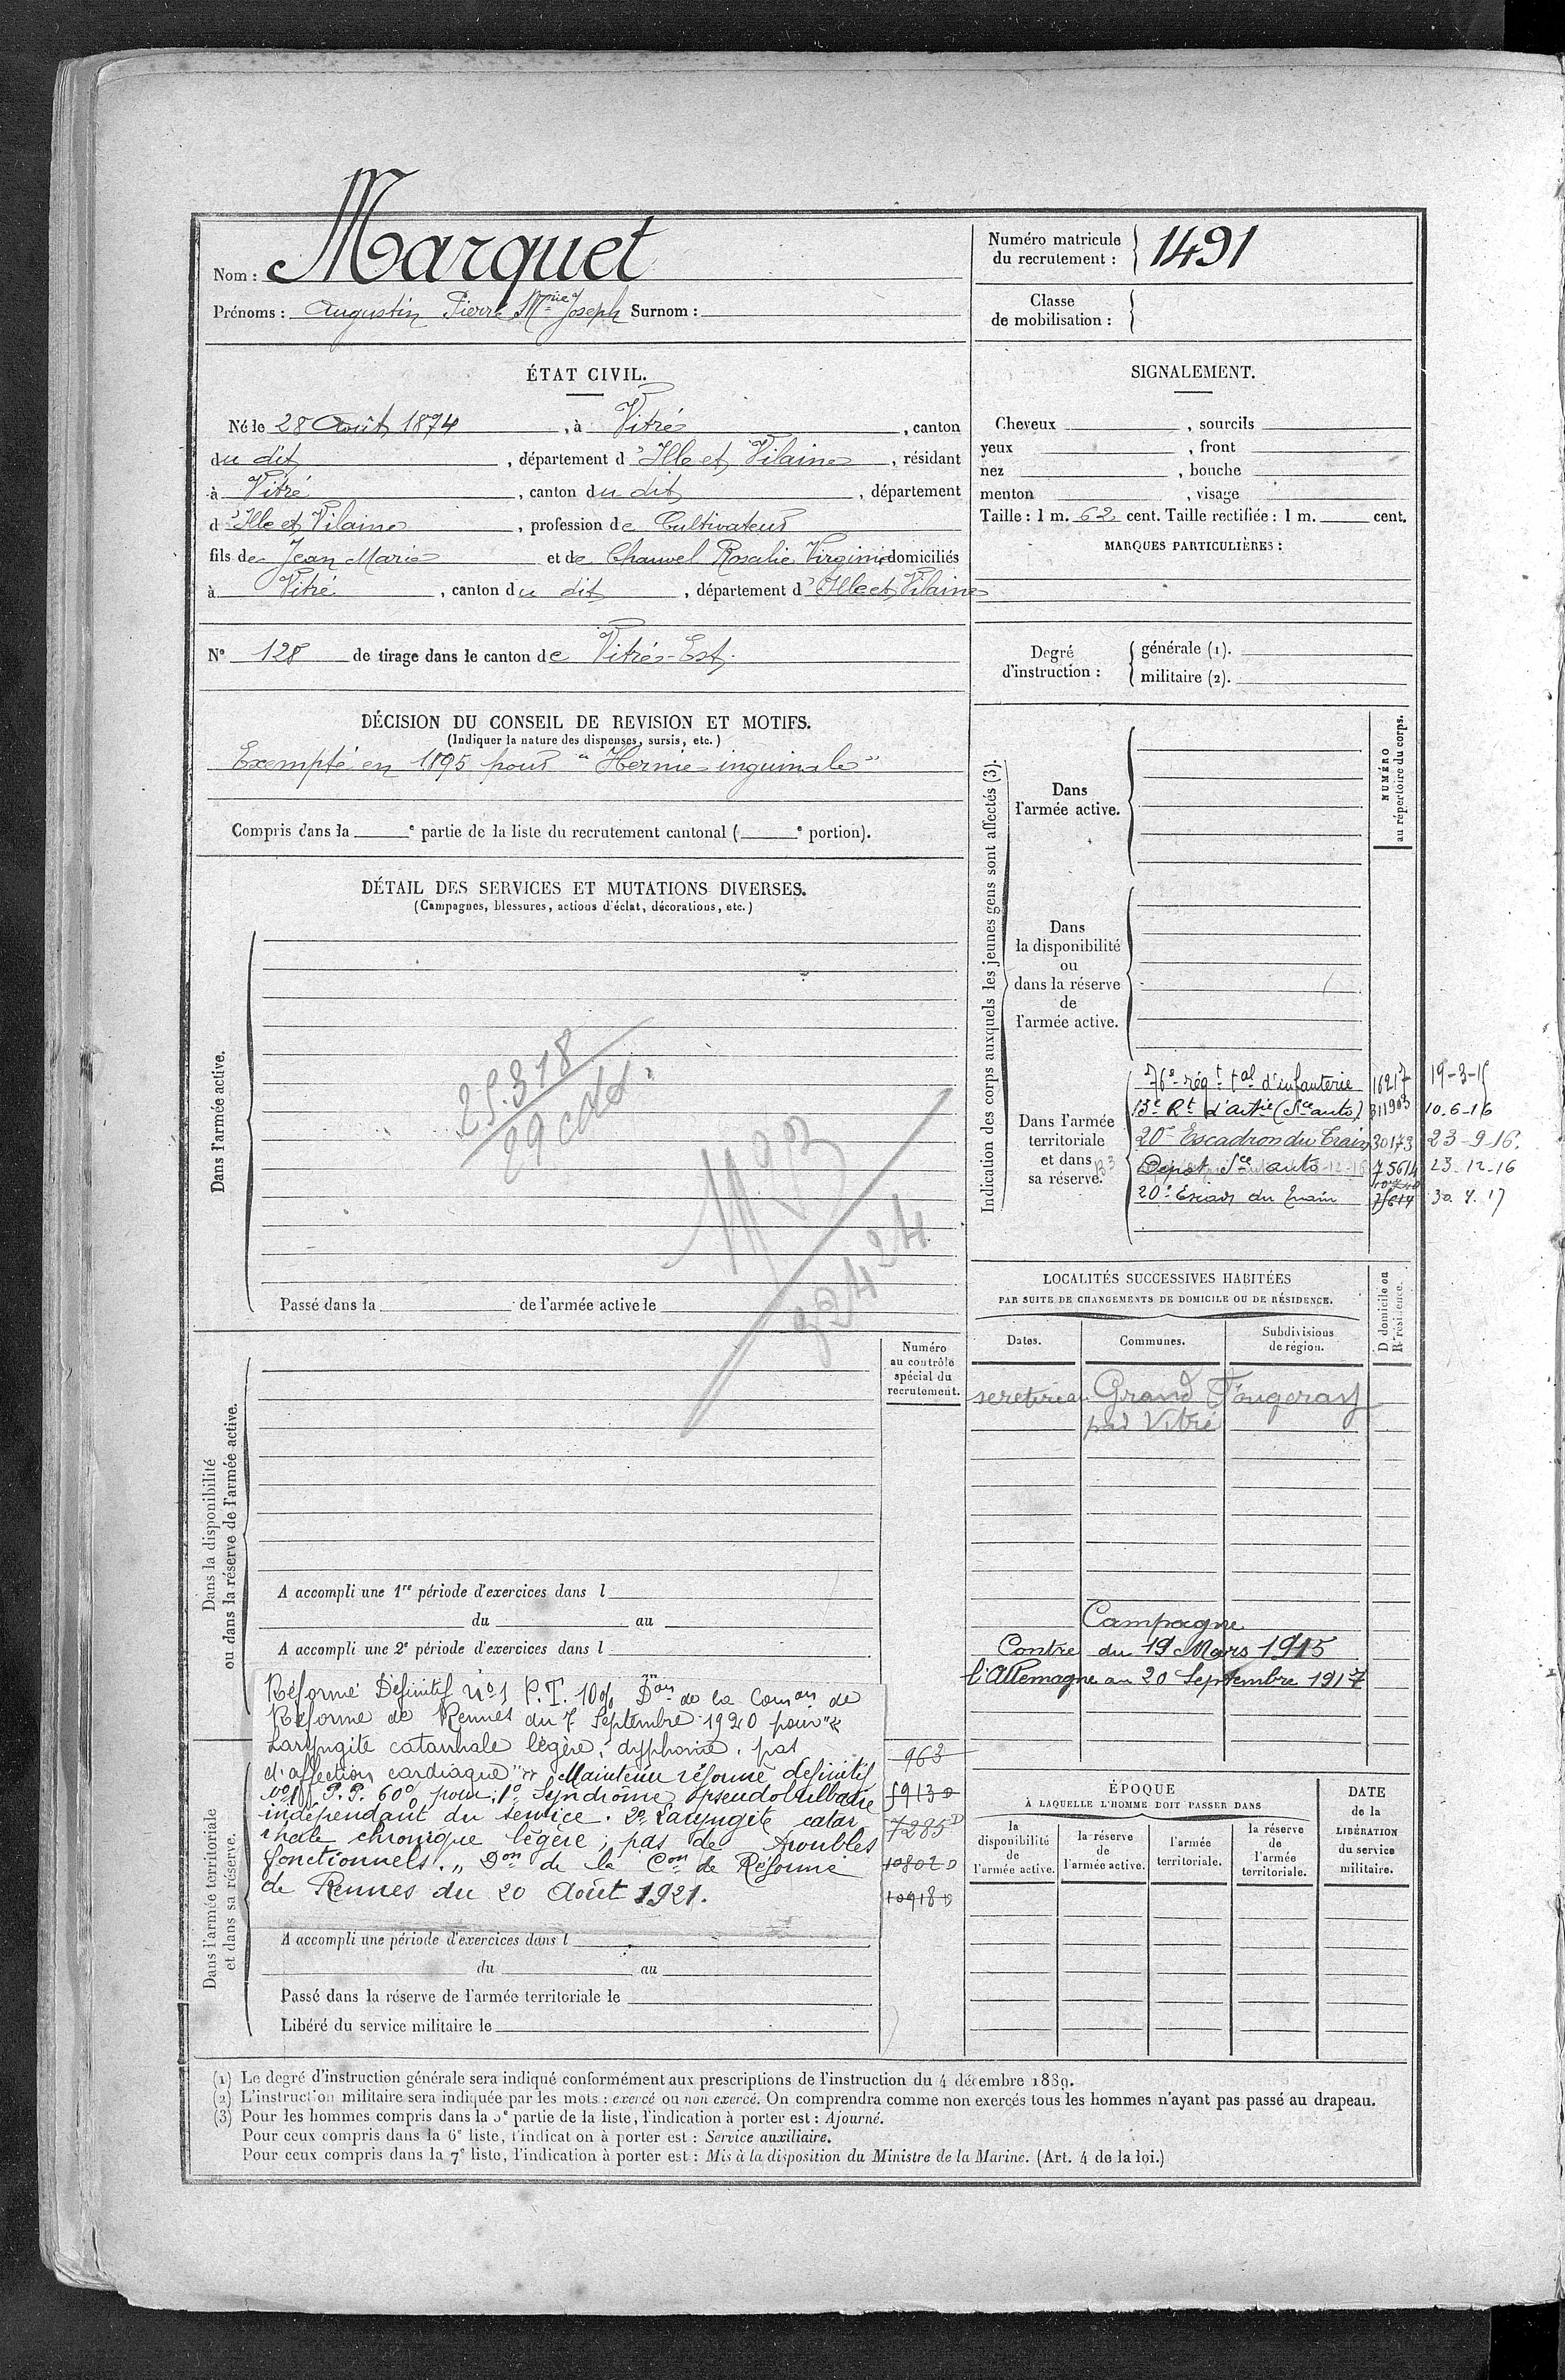 Nom : Marquet
Prénoms : Augustin Pierre Mie Joseph Surnom :
Numéro matricule du recrutement : 1491
Classe de mobilisation :
ÉTAT CIVIL.
Né le 28 Août 1874, à Vitré, canton
du dit, département d'Ille et Vilaine, résidant
à Vitré, canton du dit, département
d'Ille et Vilaine, profession de Cultivateur
fils de Jean Marie et de Chauvel Rosalie Virginie domiciliés
à Vitré, canton du dit, département d'Ille et Vilaine
N° 128 de tirage dans le canton de Vitré-Est.
SIGNALEMENT.
Cheveux , sourcils
yeux , front
nez , bouche
menton , visage
Taille : 1 m. 62 cent. Taille rectifiée : 1 m. cent.
MARQUES PARTICULIÈRES :
Degré d'instruction : générale (1).
militaire (2).
DÉCISION DU CONSEIL DE REVISION ET MOTIFS.
(Indiquer la nature des dispenses, sursis, etc.)
Exempté en 1895 pour "Hernie inguinale"
Compris dans la e partie de la liste du recrutement cantonal ( e portion).
DÉTAIL DES SERVICES ET MUTATIONS DIVERSES.
(Campagnes, blessures, actions d'éclat, décorations, etc.)
Dans l'armée active.
25.318
Passé dans la de l'armée active le
Indication des corps auxquels les jeunes gens sont affectés (3).
NUMÉRO au répertoire du corps.
Dans
l'armée active.
Dans
la disponibilité
ou
dans la réserve
de
l'armée active.
Dans l'armée
territoriale
et dans
sa réserve.
76e régt tal d'infanterie 16217 19-3-15
13e Rt d'artie (Sce auto) 311903 10.6-16
20e Escadron du Train 30173 23-9-16.
Dépot Sce auto 75614 23-12-16
20e Escad du Train 30.7.17
LOCALITÉS SUCCESSIVES HABITÉES
PAR SUITE DE CHANGEMENTS DE DOMICILE OU DE RÉSIDENCE.
D domicile ou
R résidence.
Dates. Communes. Subdivisions de région.
se retire au Grand Fougeray
par Vitré
Campagne
Contre du 19 Mars 1915
l'Allemagne au 20 Septembre 1917
Numéro
au contrôle
spécial du
recrutement.
Dans la disponibilité
ou dans la réserve de l'armée active.
A accompli une 1re période d'exercices dans l
du au
A accompli une 2e période d'exercices dans l
Réformé Définitif N°1 P.T. 10% Don de la Comon de
Réforme de Rennes du 7 Septembre 1920 pour "
Laryngite catarrhale légère, dysphonie, pas
d'affection cardiaque". Maintenu réformé définitif
N°1 P.P. 60% pour: 1° Syndrome pseudobulbaire
indépendant du service. 2° Laryngite catar
rhale chronique légère; pas de troubles
fonctionnels." Don de la Con de Réforme
de Rennes du 20 Août 1921.
963
5913 D
7285 D
10802 D
10918 D
Dans l'armée territoriale
et dans sa réserve.
A accompli une période d'exercices dans l
du au
Passé dans la réserve de l'armée territoriale le
Libéré du service militaire le
ÉPOQUE
À LAQUELLE L'HOMME DOIT PASSER DANS
la disponibilité de l'armée active.
la réserve de l'armée active.
l'armée territoriale.
la réserve de l'armée territoriale.
DATE de la LIBÉRATION du service militaire.
(1) Le degré d'instruction générale sera indiqué conformément aux prescriptions de l'instruction du 4 décembre 1889.
(2) L'instruction militaire sera indiquée par les mots : exercé ou non exercé. On comprendra comme non exercés tous les hommes n'ayant pas passé au drapeau.
(3) Pour les hommes compris dans la 5e partie de la liste, l'indication à porter est : Ajourné.
Pour ceux compris dans la 6e liste, l'indication à porter est : Service auxiliaire.
Pour ceux compris dans la 7e liste, l'indication à porter est : Mis à la disposition du Ministre de la Marine. (Art. 4 de la loi.)